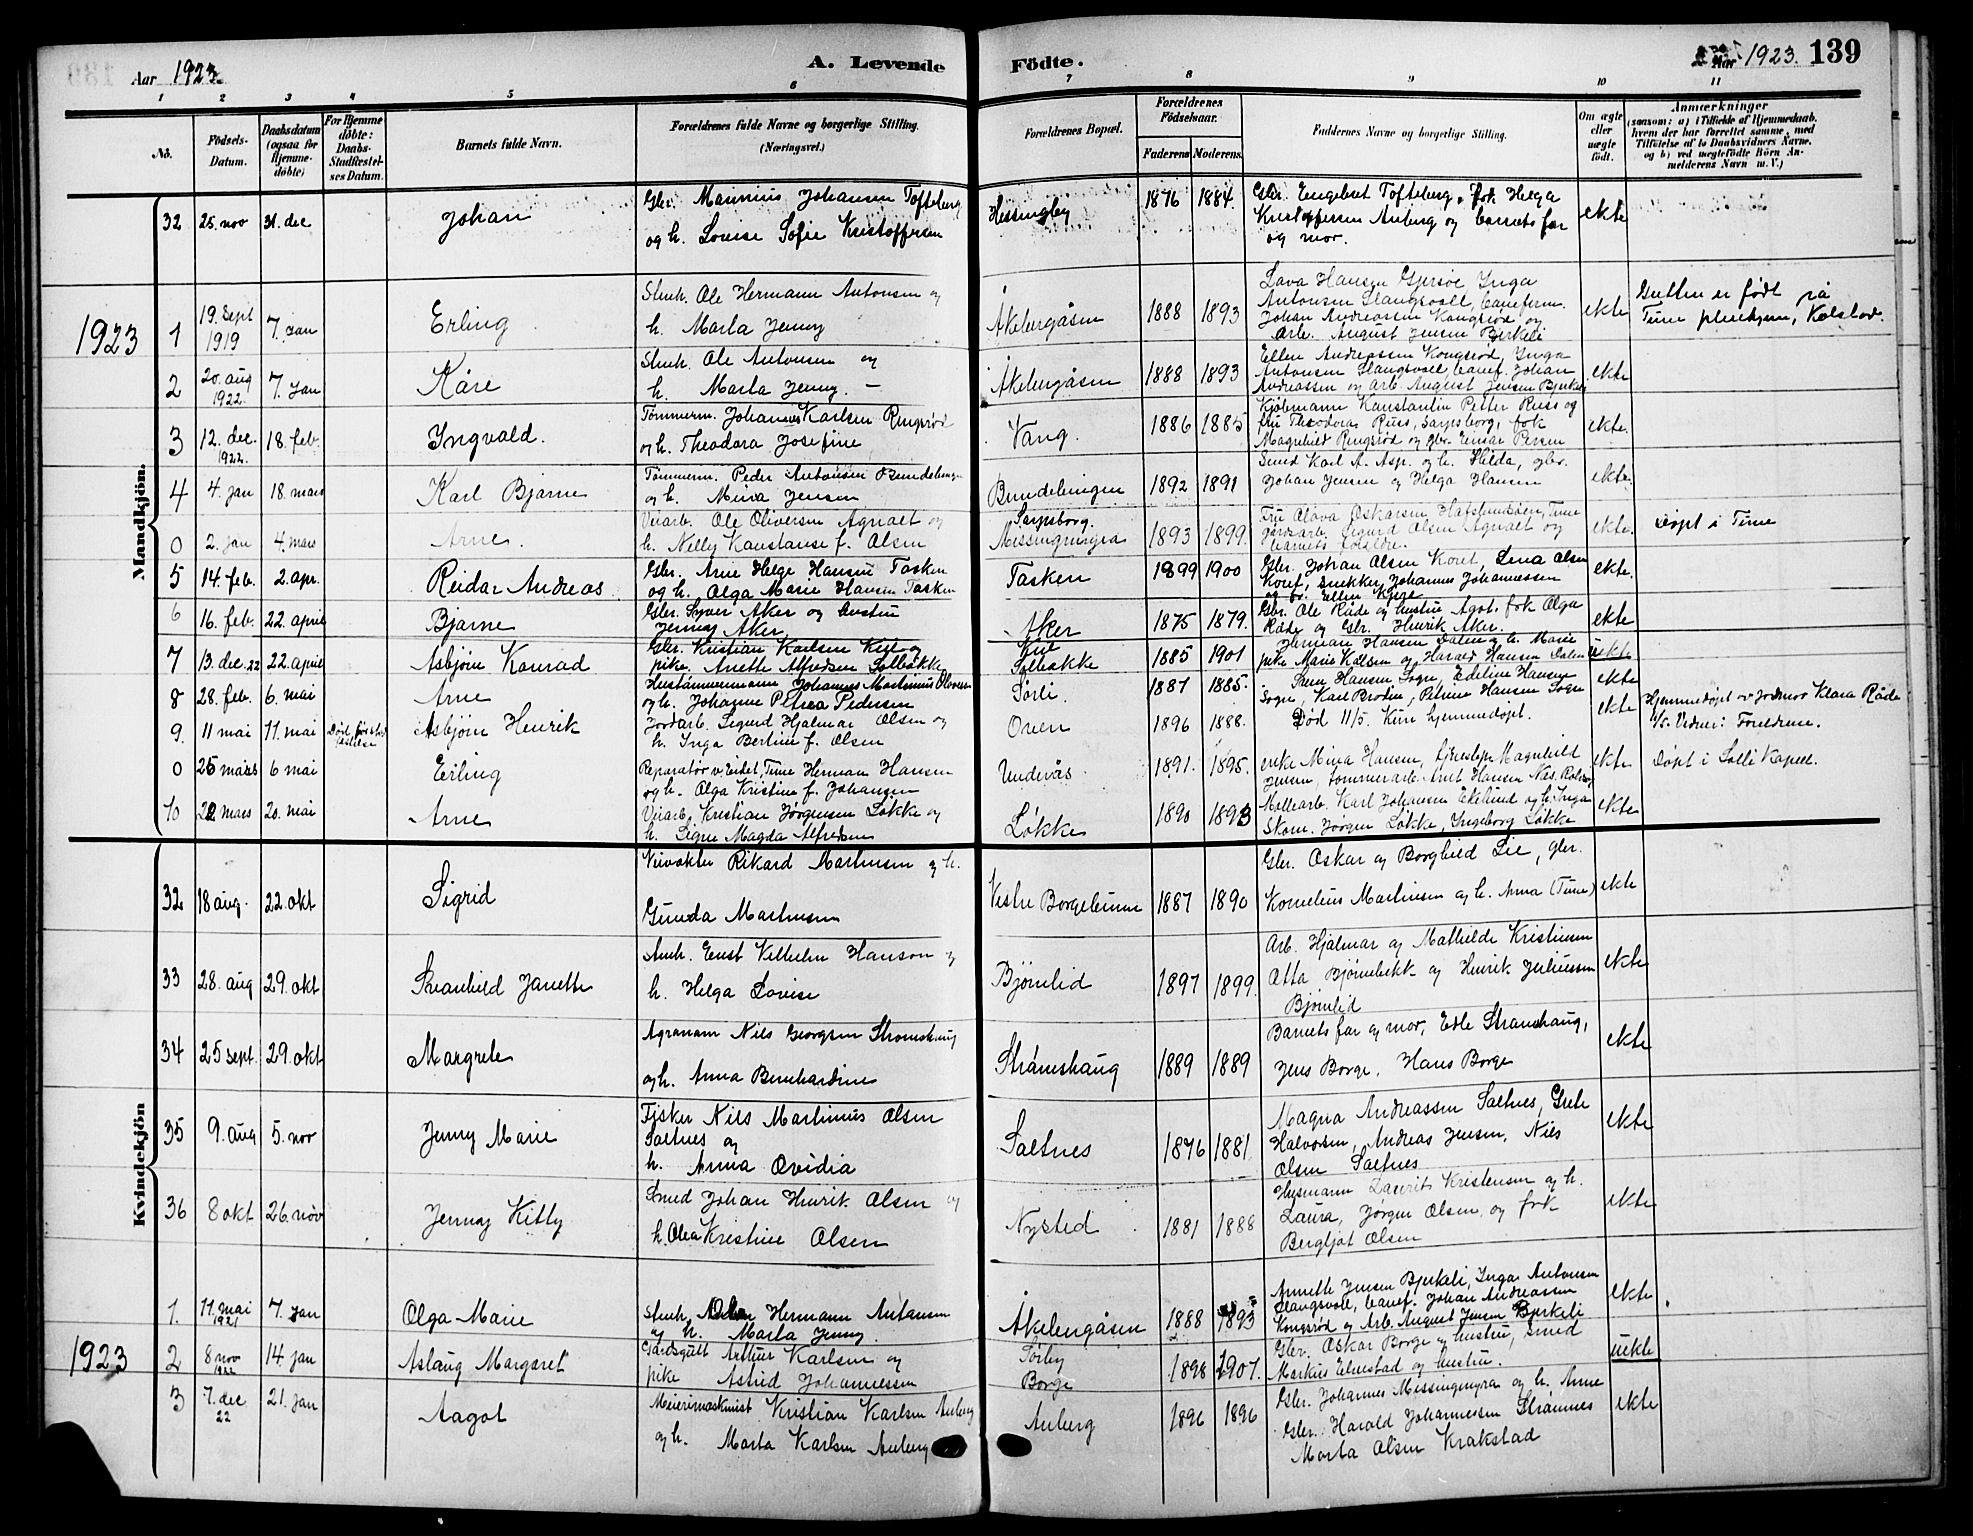 139
Aar 1923.
A. Levende Födte.
Aar 1923.
1 2 3 4 5 6 7 8 9 10 11
No.
Födsels-
Datum.
Daabsdatum
(ogsaa for
Hjemme-
döbte)
For Hjemme
döbte:
Daabs-
Stadfæstel-
ses Datum.
Barnets fulde Navn.
Forældrenes fulde Navne og borgerlige Stilling.
(Næringsvei.)
Forældrenes Bopæl.
Forældrenes
Födselsaar.
Faderens Moderens.
Faddernes Navne og borgerlige Stilling.
Om ægte
eller
uægte
født.
Anmærkninger
(saasom: a) i Tilfælde af Hjemmedaab,
hvem der har forrettet samme, med
Tilføielse af to Daabsvidners Navne,
og b) ved uægtefödte Börn An-
melderens Navn m. V.)
Mandkjön.
32 25. nov 31. dec Johan
Gbr. Marinius Johansen Tofteberg
og h. Lovise Sofie Kristoffersen
Hessingby 1876 1884.
Gbr. Engebret Tofteberg, frk Helga
Kristoffersen Auberg og barnets far
og mor.
ekte
1923
1 19. Sept 1919 7. jan Erling
Stenh. Ole Hermann Antonsen og
h. Marta Jenny
Åkebergåsen 1888 1893
Lava Hansen Gjersøe Inga
Antonsen Slangsvoll,
Johan Andreassen Kongsrød og
Arb. August Jensen Bjerkeli
ekte
Gutten er født på
Tune pleiehjem, Kalsbad.
2 20. aug 1922. 7. Jan Kåre
Stenh. Ole Antonsen og
h. Marta Jenny. —
Åkebergåsen 1888 1893
Ellen Andreassen Kongsrød, Inga
Antonsen Slangsvoll, Johan
Andreassen og Arb. August Jensen Bjerkeli
ekte
3 12. dec. 1922. 18. feb. Ingvald.
Tømmerm. Johannes Karlsen Ringsrød
og h. Theodora Josefine
Vang. 1886 1885
Kjøbmann Konstantin Petter Russ og
fru Theodora Russ, Sarpsborg, frk
Magnhild Ringsrød og gbr. Einar
ekte.
4 4. jan 18. mars Karl Bjarne
Tømmerm. Peder Antonsen
og h. Mina Jensen
1892 1891
Smed Karl A. Asp. og h. Hilda, gbr.
Johan Jensen og Helga Hansen
ekte.
0 2. jan 4. mars Arne.
Veiarb. Ole Oliversen Agnalt og
h. Nelly Konstanse f. Olsen
Sarpsborg.
Missingmyra 1893 1899.
Fru Olava Oskarsen Hafslundsøen, Tune
gårdsarb. Sigurd Olsen Agnalt og
barnets foreldre.
ekte.
Døpt i Tune
5 14. feb. 2. apr. Reidar Andreas
Gbr. Arne Helge Hansen Tasken
og h. Olga Marie Hansen Tasken
Tasken 1899 1900
Gbr. Johan Olsen Koret, Lena Olsen
Koret, snekker Johannes Johannessen
ekte.
6 16. feb. 22. april Bjarne
Gbr. Syver Aker og hustru
Jenny Aker
Aker 1875 1879.
Gbr. Ole Råde og hustru Agot, frk Olga
Råde og Gbr. Henrik Aker.
ekte
7 13. dec. 22 22. april Asbjørn Konrad
Gbr. Kristian Karlsen Kiil og
pike. Anette Alfredsen Solbakke
Kiil
Solbakke 1885 1901
Herman Hansen Dalen og h. Marie
pike Marie Karlsen og Harald Hansen Dalen
8 28. feb. 6. mai Arne
Hustømmermann Johannes Martinius Olavesen
og h. Johanne Petrea Pedersen
Sørli. 1887 1885.
Hansen Sogn, Edeline Hansen
Sogn, Karl Brodin, Petrine Hansen Sogn
ekte
9. 11 mai 11. mai Asbjørn Henrik
Jordarb. Sigurd Hjalmar Olsen og
h. Inga Bertine f. Olsen
Oven 1896 1888.
Død 11/5. Kun hjemmedøpt.
ekte
Hjemmedøpt av jordmor Klara Råde
11/5. Vidner: Foreldrene.
0 25 mars 6 mai Erling
Reparatør v. Eidet, Tune Herman Hansen
og h. Olga Kristine f. Johansen
Undevås 1891. 1895.
enke Mina Hansen, Magnhild
Jensen, tømmerarb. Hansen
ekte
Døpt i Solli Kapel.
10 22 mars 20. mai Arne
Veiarb. Kristian Jørgensen Løkke og
h. Signe Magda Alfredsen
Løkke 1890 1893
Møllearb. Karl Johansen Ekelund og h. Inga
Skom. Jørgen Løkke, Ingeborg Løkke
ekte
Kvindekjön
32 18 aug. 22. okt Sigrid
Veivokter Rikard Martinsen og h.
Gunda Martinsen
Vestre Borgebunn 1887 1890
Gbr. Oskar og Borghild Lie, gbr.
Kornelius Martinsen og h. Anna (Tune)
ekte
33 28. aug 29. okt Svanhild Janette
Ernst Vilhelm Hanson og
h. Helga Lovise
Bjørnlid 1897 1899.
Arb. Hjalmar og Mathilde Kristinsen
Otta Bjørnebekk og Henrik Juliussen
Bjørnlid
ekte
34 25 sept. 29. okt Margrete
Agronom Nils Georgsen Stromshaug
og h. Anna Bernhardine
Strømshaug 1889 1889
Barnets far og mor, Edle Strømshaug,
Jens Borge, Hans Borge
ekte
35 9. aug 5. nov Jenny Marie
Fisker Nils Martinius Olsen
Saltnes og
h. Anna Ovidia
Saltnes 1876 1881
Magna Andreassen Saltnes, Grete
Halvorsen, Andreas Jensen, Nils
Olsen Saltnes
ekte
36 8 okt 26. nov Jenny Kitty
Smed Johan Henrik Olsen og
h. Olea Kristine Olsen
Nysted 1881 1888
Husmann Laurits Kristensen og h.
Laura, Jørgen Olsen, og frk
Bergljot Olsen
ekte
1923
1. 11. mai 1921 7. Jan Olga Marie
Stenh. Ole Hermann Antonsen
og h. Marta Jenny.
Åkebergåsen 1888 1893
Annette Jensen Bjerkeli, Inga Antonsen
Slangsvoll, Johan Andreassen
Kongsrød og Arb. August Jensen Bjerkeli
ekte
2 8 nov 1922 14. jan Aslaug Margaret
Gårdsgutt Arthur Karlsen og
pike Astrid Johannessen
Torby
Borge 1898 1901.
Gbr. Oskar Borge og hustru, smed
Markus Elnestad og hustru.
uekte
3 7. dec 22 21. jan Aagot
Meierimaskinist Kristian Karlsen Auberg
og h. Marta Karlsen Auberg
Auberg 1896 1896
Gbr. Johannes Missingmyra og h. Anne
Gbr. Harald Johannessen Strømnes
Marta Olsen Krakstad
ekte